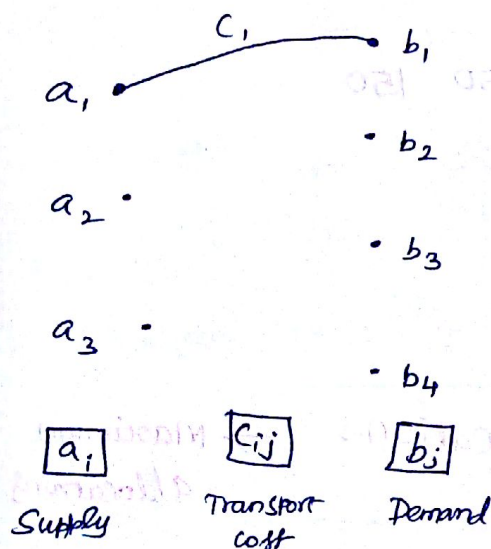 C₁
a₁ b₁
b₂
a₂
b₃
a₃
b₄
aᵢ Cᵢⱼ bⱼ
Supply Transport Demand
cost